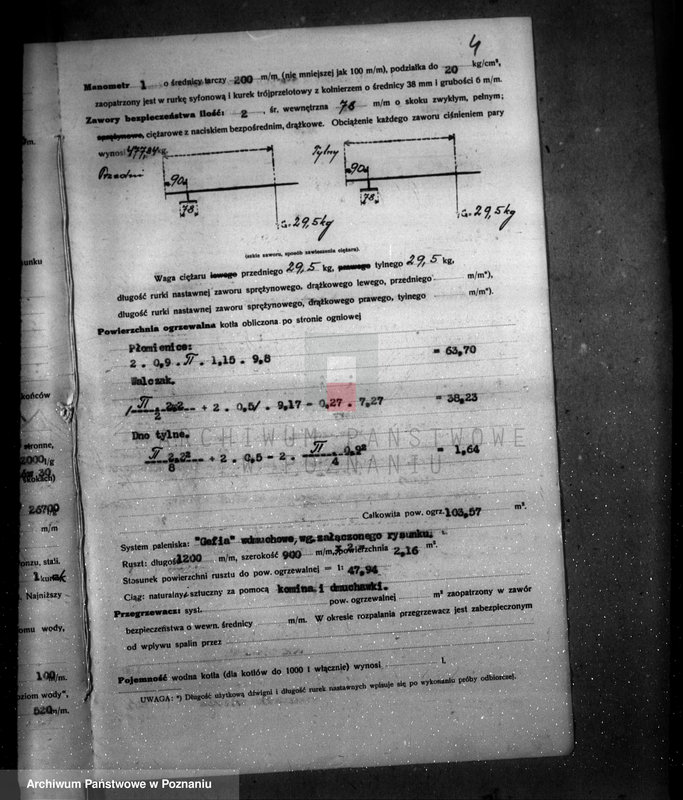 4
Manometr 1 o średnicy tarczy 200 m/m (nie mniejszej jak 100 m/m), podziałka do 20 kg/cm²,
zaopatrzony jest w rurkę syfonową i kurek trójprzelotowy z kołnierzem o średnicy 38 mm i grubości 6 m/m.
Zawory bezpieczeństwa ilość: 2, śr. wewnętrzna 78 m/m o skoku zwykłym, pełnym;
sprężynowe, ciężarowe z naciskiem bezpośrednim, drążkowe. Obciążenie każdego zaworu ciśnieniem pary
wynosi 477,84 kg.
Przedni
90
78
G. 29,5 kg
Tylny
90
78
G. 29,5 kg
(szkic zaworu, sposób zawieszenia ciężaru).
Waga ciężaru lewego przedniego 29,5 kg, prawego tylnego 29,5 kg,
długość rurki nastawnej zaworu sprężynowego, drążkowego lewego, przedniego m/m*),
długość rurki nastawnej zaworu sprężynowego, drążkowego prawego, tylnego m/m*).
Powierzchnia ogrzewalna kotła obliczona po stronie ogniowej
Płomienice:
2 . 0,9 . π . 1,15 . 9,8 = 63,70
Walczak.
/ π . 2,2 / 2 + 2 . 0,5/ . 9,17 - 0,27 . 7,27 = 38,23
Dno tylne.
π 2,2² / 8 + 2 . 0,5 - 2 . π . 0,9² / 4 = 1,64
Całkowita pow. ogrz. 103,57 m².
System paleniska: "Gefia" wdmuchowe, wg. załączonego rysunku.
Ruszt: długość 1200 m/m, szerokość 900 m/m, x 2 powierzchnia 2,16 m².
Stosunek powierzchni rusztu do pow. ogrzewalnej = 1: 47,94
Ciąg: naturalny, sztuczny za pomocą komina i dmuchawki.
Przegrzewacz: syst. pow. ogrzewalnej m² zaopatrzony w zawór
bezpieczeństwa o wewn. średnicy m/m. W okresie rozpalania przegrzewacz jest zabezpieczony
od wpływu spalin przez
Pojemność wodna kotła (dla kotłów do 1000 l włącznie) wynosi l.
UWAGA: *) Długość użytkową dźwigni i długość rurek nastawnych wpisuje się po wykonaniu próby odbiorczej.
końców
stronne,
2000 l/g
26700
m/m
stali.
Najniższy
wody,
100 /m.
poziom wody",
520 m/m.
ARCHIWUM PAŃSTWOWE
W POZNANIU
Archiwum Państwowe w Poznaniu